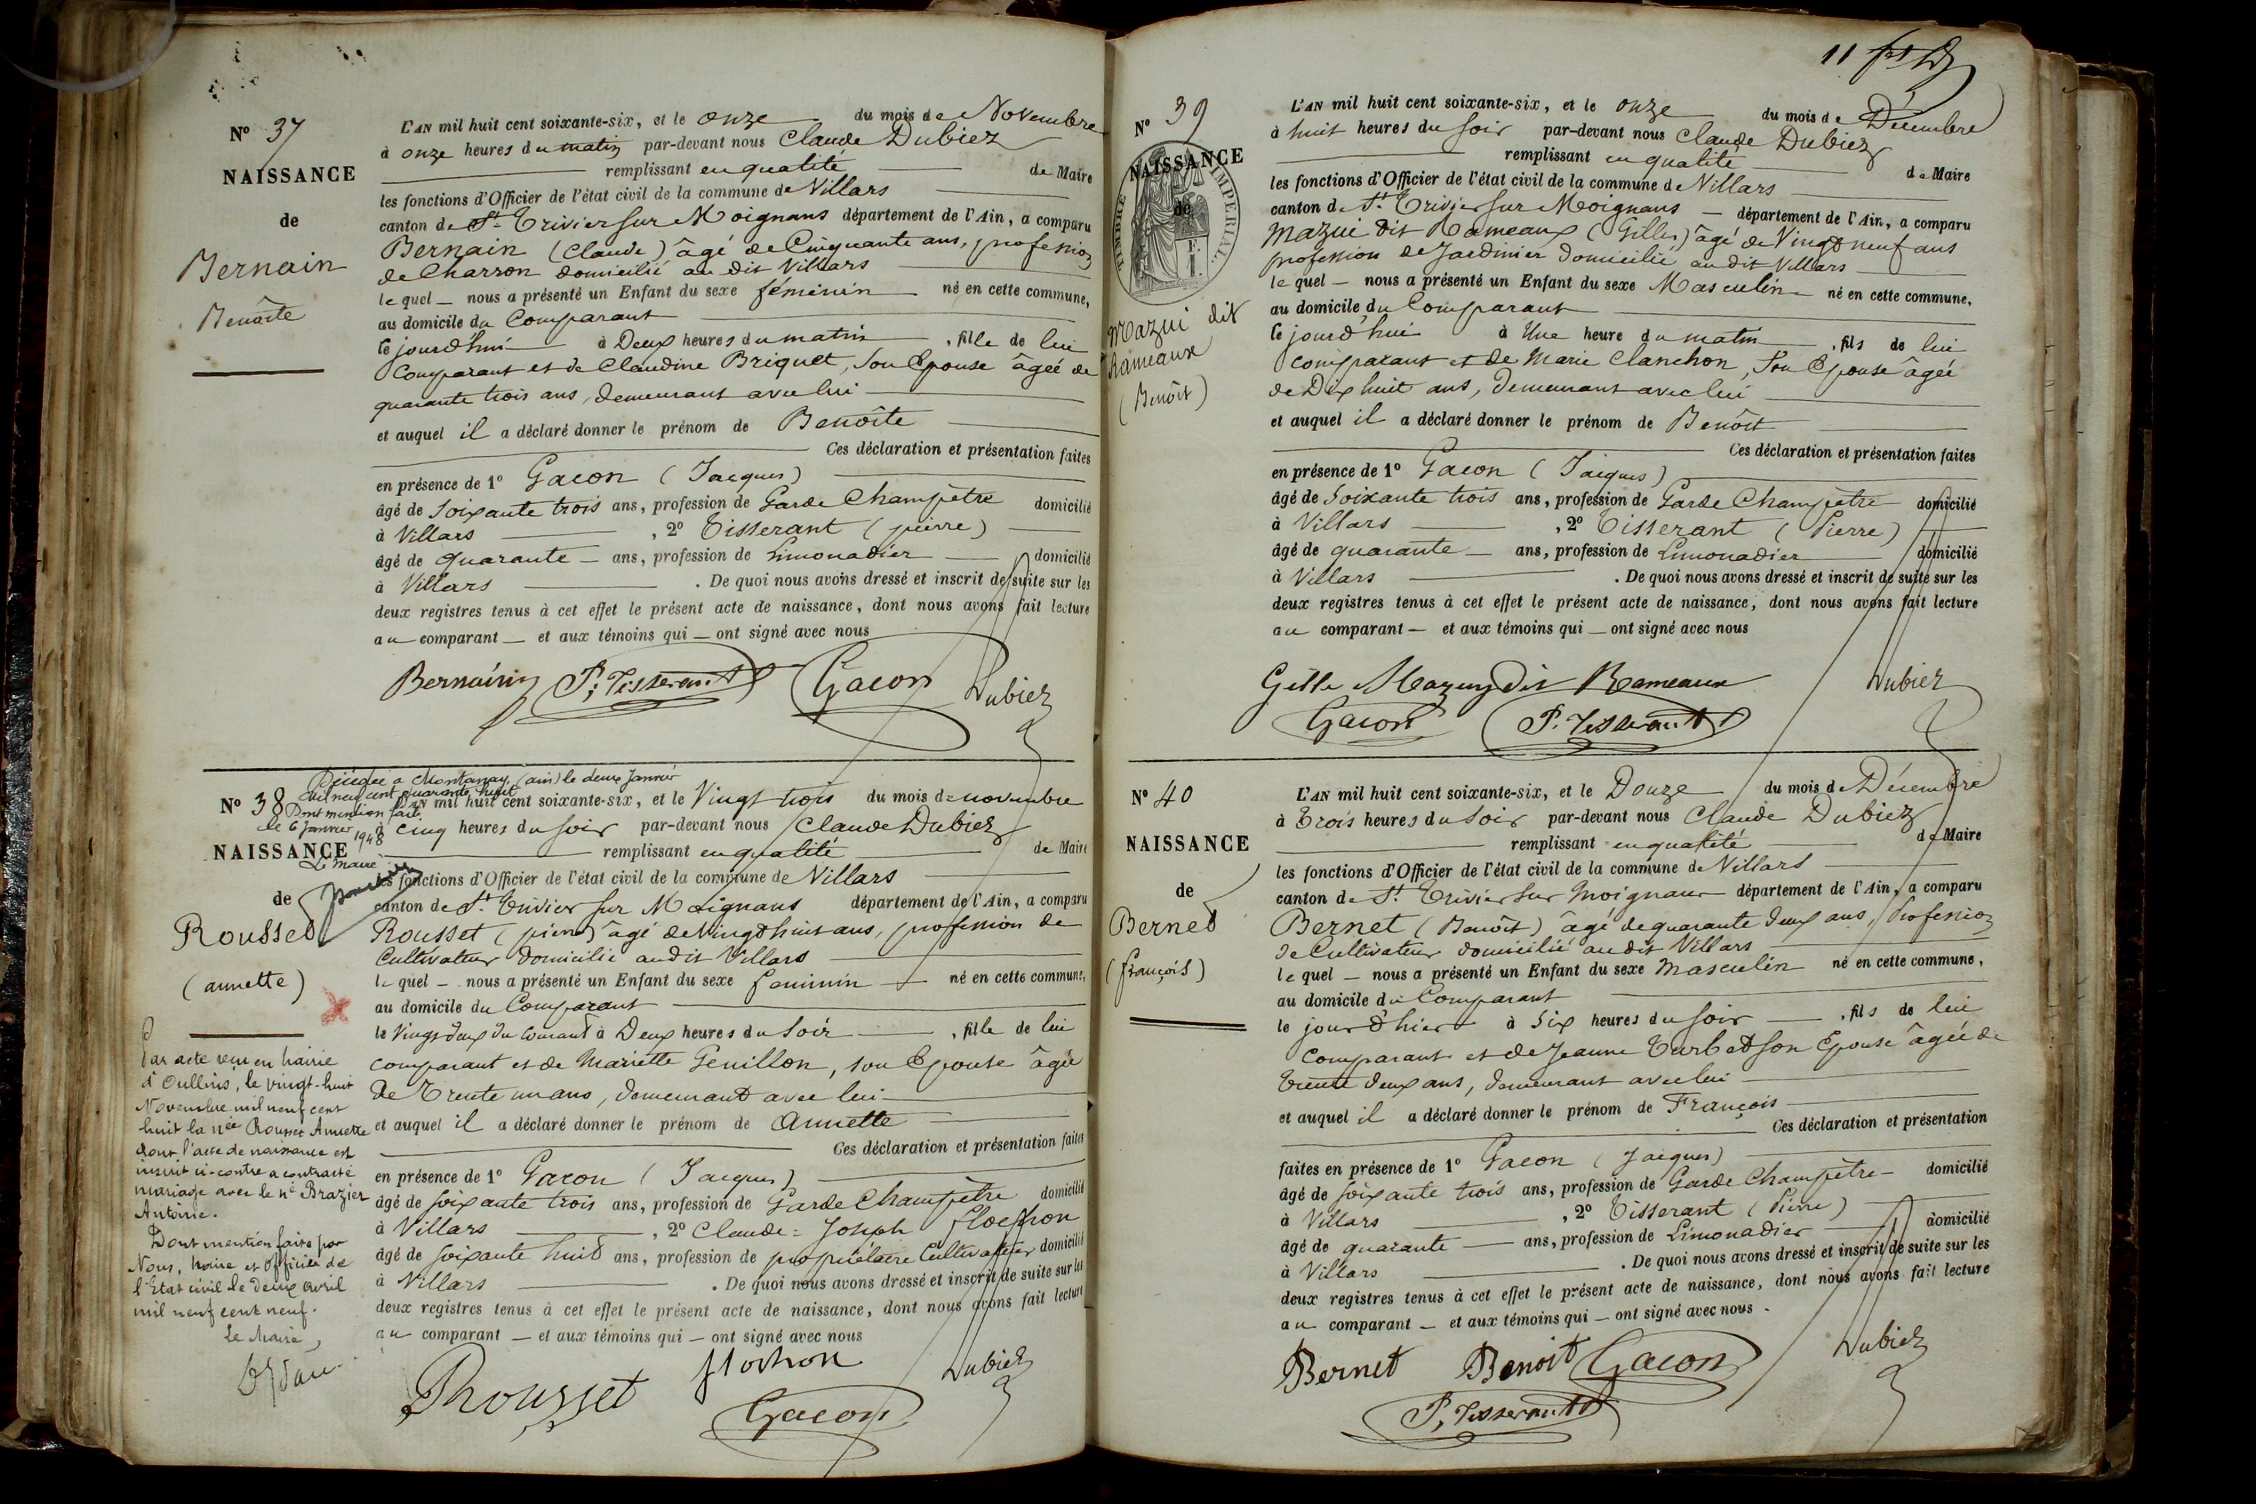 N° 37
NAISSANCE
de
Bernain
Benoîte
L'AN mil huit cent soixante-six, et le onze du mois de Novembre
à onze heures du matin par-devant nous Claude Dubiez
remplissant en qualité de Maire
les fonctions d'Officier de l'état civil de la commune de Villars
canton de St Trivier sur Moignans département de l'Ain, a comparu
Bernain (Claude) âgé de Cinquante ans, profession
de Charron domicilié au dit Villars
lequel nous a présenté un Enfant du sexe féminin né en cette commune,
au domicile du Comparant
ce jourd'hui à Deux heures du matin, fille de lui
Comparant et de Claudine Briquet, son Epouse âgée de
quarante trois ans, demeurant avec lui
et auquel il a déclaré donner le prénom de Benoîte
Ces déclaration et présentation faites
en présence de 1° Gacon (Jacques)
âgé de Soixante trois ans, profession de Garde Champêtre domicilié
à Villars, 2° Tisserant (pierre)
âgé de quarante ans, profession de Limonadier domicilié
à Villars. De quoi nous avons dressé et inscrit de suite sur les
deux registres tenus à cet effet le présent acte de naissance, dont nous avons fait lecture
au comparant et aux témoins qui ont signé avec nous
Bernain P. Tisserant Gacon Dubiez
Décédée à Montanay (ain) le deux Janvier
mil neuf cent quarante huit
Dont mention faite
le 6 Janvier 1948
Le Maire
N° 38
NAISSANCE
de
Rousset
(annette)
L'AN mil huit cent soixante-six, et le Vingt trois du mois de novembre
à cinq heures du soir par-devant nous Claude Dubiez
remplissant en qualité de Maire
les fonctions d'Officier de l'état civil de la commune de Villars
canton de St Trivier sur Moignans département de l'Ain, a comparu
Rousset (pierre) âgé de Vingt huit ans, profession de
Cultivateur domicilié au dit Villars
lequel nous a présenté un Enfant du sexe feminin né en cette commune,
au domicile du Comparant
le Vingt deux du courant à Deux heures du Soir, fille de lui
comparant et de Mariette Genillon, son Epouse âgée
de Trente un ans, demeurant avec lui
et auquel il a déclaré donner le prénom de Annette
Ces déclaration et présentation faites
en présence de 1° Gacon (Jacques)
âgé de soixante trois ans, profession de Garde Champêtre domicilié
à Villars, 2° Claude=Joseph
âgé de soixante huit ans, profession de propriétaire Cultivateur domicilié
à Villars. De quoi nous avons dressé et inscrit de suite sur les
deux registres tenus à cet effet le présent acte de naissance, dont nous avons fait lecture
au comparant et aux témoins qui ont signé avec nous
Rousset Gacon Dubiez
Par acte reçu en mairie
d'Oullins, le vingt-huit
Novembre mil neuf cent
huit la née Rousset Annette
dont l'acte de naissance est
inscrit ci-contre a contracté
mariage avec le né Brazier
Antoine.
Dont mention faite par
Nous, Maire et Officier de
l'Etat civil le deux avril
mil neuf cent neuf.
Le Maire,
11
N° 39
NAISSANCE
de
TIMBRE IMPERIAL
Mazui dit
Rameaux
(Benoît)
L'AN mil huit cent soixante-six, et le onze du mois de Décembre
à huit heures du soir par-devant nous Claude Dubiez
remplissant en qualité de Maire
les fonctions d'Officier de l'état civil de la commune de Villars
canton de St Trivier sur Moignans département de l'Ain, a comparu
Mazui dit Rameaux (Gilles) âgé de Vingt neuf ans
profession de Jardinier domicilié au dit Villars
lequel nous a présenté un Enfant du sexe Masculin né en cette commune,
au domicile du Comparant
ce jourd'hui à Une heure du matin, fils de lui
comparant et de Marie Clanchon, son Epouse âgée
de Dix huit ans, demeurant avec lui
et auquel il a déclaré donner le prénom de Benoît
Ces déclaration et présentation faites
en présence de 1° Gacon (Jacques)
âgé de Soixante trois ans, profession de Garde Champêtre domicilié
à Villars, 2° Tisserant (Pierre)
âgé de quarante ans, profession de Limonadier domicilié
à Villars. De quoi nous avons dressé et inscrit de suite sur les
deux registres tenus à cet effet le présent acte de naissance, dont nous avons fait lecture
au comparant et aux témoins qui ont signé avec nous
Gille Mazuy dit Rameaux Dubiez
Gacon P. Tisserant
N° 40
NAISSANCE
de
Bernet
(françois)
L'AN mil huit cent soixante-six, et le Douze du mois de Décembre
à Trois heures du soir par-devant nous Claude Dubiez
remplissant en qualité de Maire
les fonctions d'Officier de l'état civil de la commune de Villars
canton de St Trivier sur Moignans département de l'Ain, a comparu
Bernet (Benoît) âgé de quarante deux ans, Profession
de Cultivateur domicilié au dit Villars
lequel nous a présenté un Enfant du sexe masculin né en cette commune,
au domicile du Comparant
le jour d'hier à Six heures du soir, fils de lui
comparant et de Jeanne Turbet son Epouse âgée de
trente deux ans, demeurant avec lui
et auquel il a déclaré donner le prénom de François
Ces déclaration et présentation
faites en présence de 1° Gacon (Jacques)
âgé de soixante trois ans, profession de Garde Champêtre domicilié
à Villars, 2° Tisserant (Pierre)
âgé de quarante ans, profession de Limonadier domicilié
à Villars. De quoi nous avons dressé et inscrit de suite sur les
deux registres tenus à cet effet le présent acte de naissance, dont nous avons fait lecture
au comparant et aux témoins qui ont signé avec nous.
Bernet Benoit Gacon Dubiez
P. Tisserant